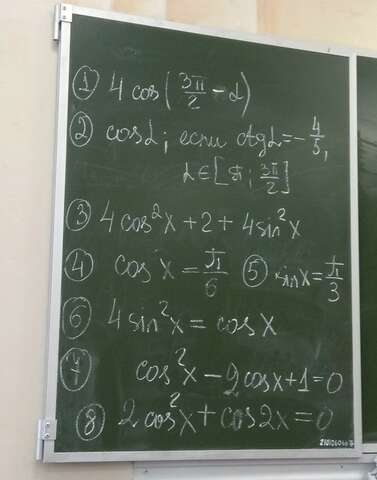 ① 4 cos(3π/2 - α)
② cos α; если ctg α = -4/5,
α ∈ [π; 3π/2]
③ 4 cos²x + 2 + 4 sin²x
④ cos x = π/6 ⑤ sin x = π/3
⑥ 4 sin²x = cos x
⑦ cos²x - 2 cos x + 1 = 0
⑧ 2 cos²x + cos 2x = 0